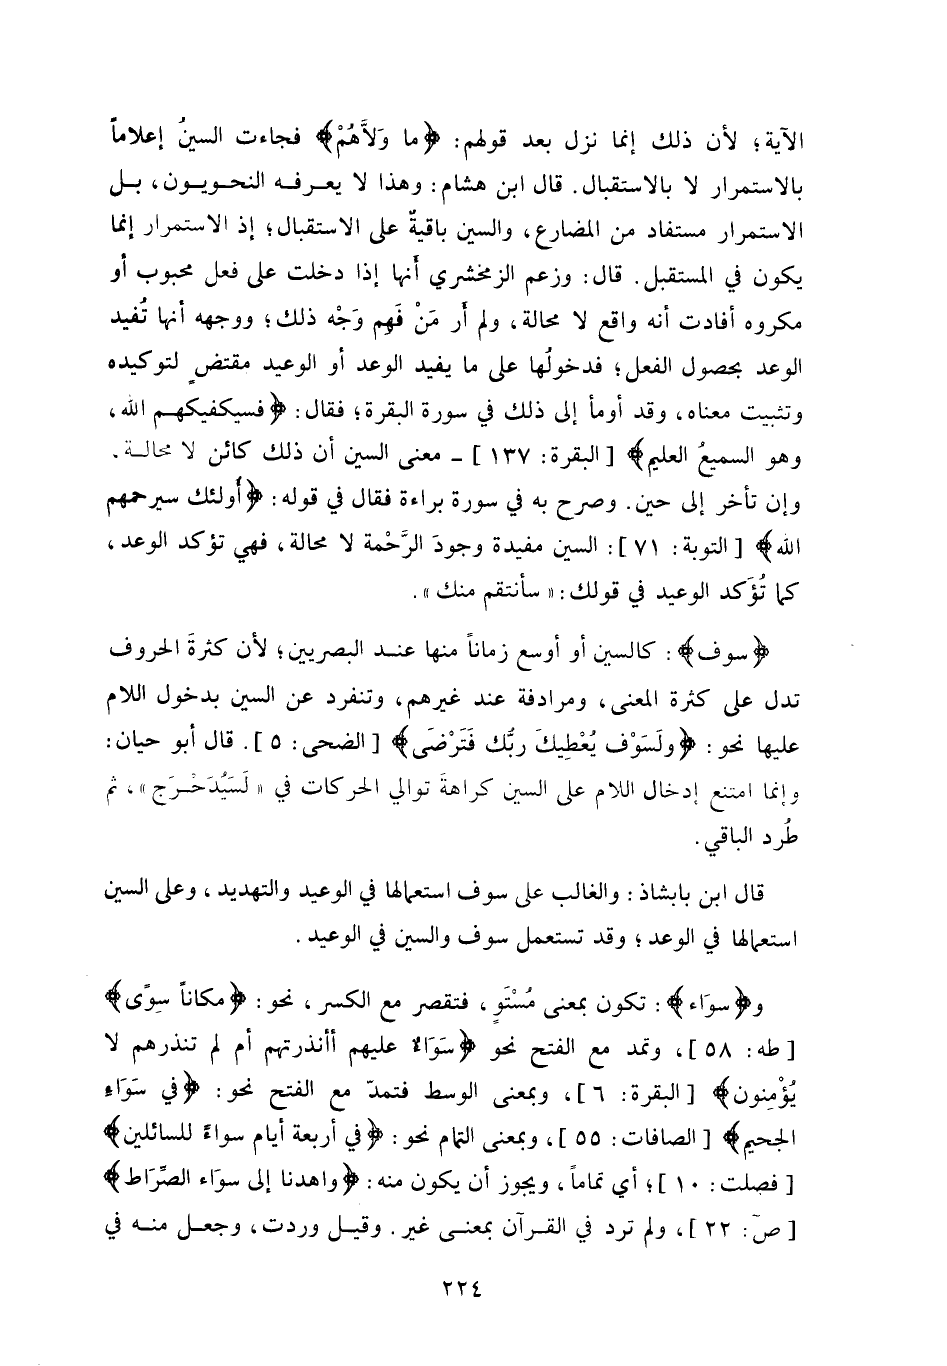 الآية؛ لأن ذلك إنما نزل بعد قولهم: ﴿ما وَلاَّهُمْ﴾ فجاءت السينُ إعلاماً
بالاستمرار لا بالاستقبال. قال ابن هشام: وهذا لا يعرفه النحويون، بل
الاستمرار مستفاد من المضارع، والسين باقيةٌ على الاستقبال؛ إذ الاستمرار إنما
يكون في المستقبل. قال: وزعم الزمخشري أنها إذا دخلت على فعل محبوب أو
مكروه أفادت أنه واقع لا محالة، ولم أر مَنْ فَهِم وَجْه ذلك؛ ووجهه أنها تُفيد
الوعد بحصول الفعل؛ فدخولُها على ما يفيد الوعد أو الوعيد مقتضٍ لتوكيده
وتثبيت معناه، وقد أومأ إلى ذلك في سورة البقرة؛ فقال: ﴿فسيكفيكهم الله،
وهو السميعُ العليم﴾ [البقرة: ١٣٧] ـ معنى السين أن ذلك كائن لا محالة.
وإن تأخر إلى حين. وصرح به في سورة براءة فقال في قوله: ﴿أولئك سيرحمهم
الله﴾ [التوبة: ٧١]: السين مفيدة وجودَ الرَّحْمة لا محالة، فهي تؤكد الوعد،
كما تُؤكد الوعيد في قولك: «سأنتقم منك».
﴿سوف﴾: كالسين أو أوسع زماناً منها عند البصريين؛ لأن كثرةَ الحروف
تدل على كثرة المعنى، ومرادفة عند غيرهم، وتنفرد عن السين بدخول اللام
عليها نحو: ﴿ولَسَوْف يُعْطِيكَ ربُّك فَتَرْضَى﴾ [الضحى: ٥]. قال أبو حيان:
وإنما امتنع إدخال اللام على السين كراهةَ توالي الحركات في «لَسَيُدَحْرَج»، ثم
طُرد الباقي.
قال ابن بابشاذ: والغالب على سوف استعمالها في الوعيد والتهديد، وعلى السين
استعمالها في الوعد؛ وقد تستعمل سوف والسين في الوعيد.
و﴿سوَاء﴾: تكون بمعنى مُسْتَوٍ، فتقصر مع الكسر، نحو: ﴿مكاناً سِوًى﴾
[طه: ٥٨]، وتمد مع الفتح نحو ﴿سَوَاءٌ عليهم أأنذرتهم أم لم تنذرهم لا
يُؤْمِنون﴾ [البقرة: ٦]، وبمعنى الوسط فتمدّ مع الفتح نحو: ﴿في سَوَاءِ
الجحيم﴾ [الصافات: ٥٥]، وبمعنى التمام نحو: ﴿في أربعة أيام سواءً للسائلين﴾
[فصلت: ١٠]؛ أي تماماً، ويجوز أن يكون منه: ﴿واهدنا إلى سوَاء الصِّرَاط﴾
[صۤ: ٢٢]، ولم ترد في القرآن بمعنى غير. وقيل وردت، وجعل منه في
٢٢٤